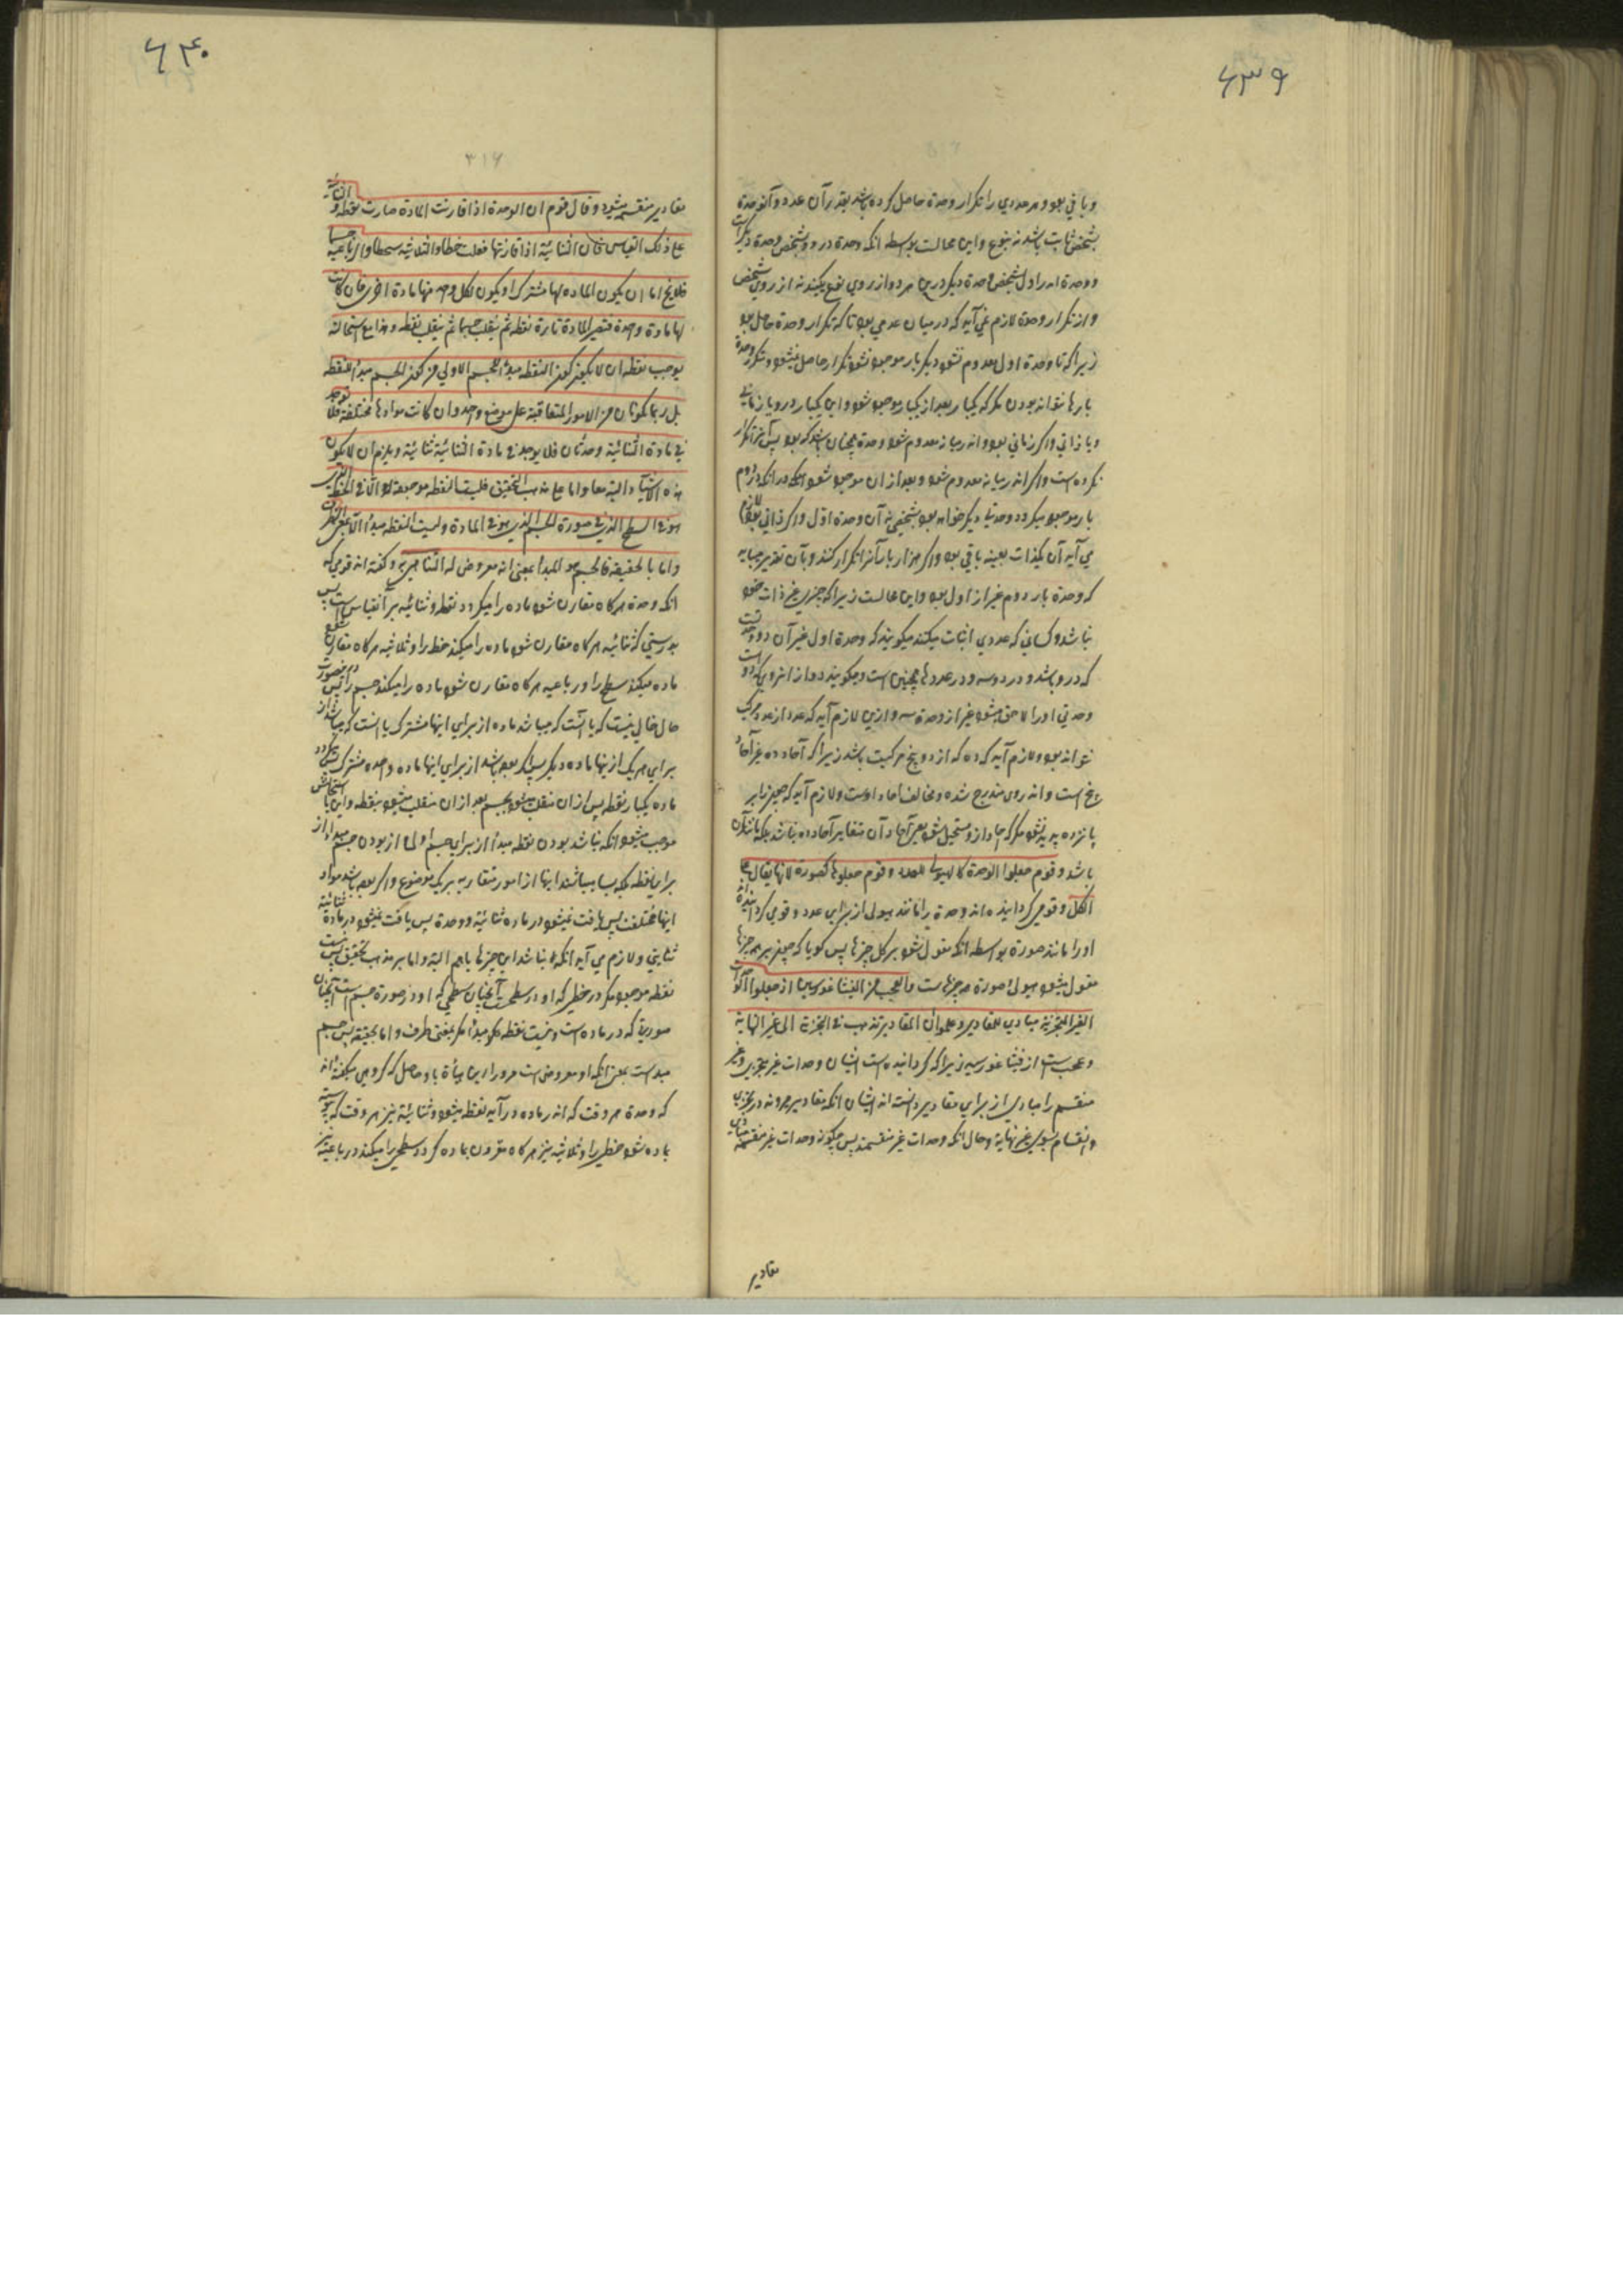 ۶۳۹
و باقی بود و هر عددی را تکرار وحدة حاصل کرده باشد بقدر آن عدد و آنوحدة
بشخص ثابت باشد نه بنوع و این محالست بواسطه انکه وحدة در دو شخص وحدة دیگر است
و وحدة اند را اول شخص وحدة دیگر درین هر دو از روی نوع یکیند نه از روی شخص
و از تکرار وحدة لازم نمی آید که در میان عدمی بود تا که تکرار وحدة حاصل بود
زیرا که تا وحدة اول معدوم نشود دیگر بار موجود نشود تکرار حاصل نمیشود و تکرار وحدة
بارها نتواند بودن مگر که یکبار بعد از یکبار موجود شود و این یکبار در و یا زمانی
و یا ذاتی و اگر زمانی بود و اندر میانه معدوم نشود وحدة همچنان باشد که بود پس آنرا تکرار
نکرده است و اگر اندر میانه معدوم شود و بعد از ان موجود شود انکه در انکه دوم
بار موجود میگردد وحدتی دیگر خواهد بود بشخص نه آن وحدة اول و اگر ذاتی بود
می آید آن یکذات بعینه باقی بود و اگر هزار بار آنرا تکرار کنند و بآن تقدیر میباید
که وحدة بار دوم غیر از اول بود و این محالست زیرا که چیزی غیر ذات خود
نباشد و کسانی که عددی اثبات میکنند میکویند که وحدة اول غیر آن دو وحدتست
که در و باشد و در دو سه و در عددها همچنین است و میکویند دو از انروی که دو است
وحدتی او را لاحق میشود غیر از وحدة سه و ازین لازم آید که عدد از عدد مرکب
نتواند بود و لازم آید که ده که از دو پنج مرکبست باشد زیرا که آحاد ده غیر آحاد
پنج است و اندروی مندرج شده و مخالف احاد اوست و لازم آید که چیز را بر
پانزده پدید نشود مگر که احاد از و مستحیل شود یعنی آحاد آن متغایر آحاد ده نباشد بلکه مانند آن
باشد و قوم جعلوا الوحدة کالهیولی للعدد و قوم جعلوها کصورة لانها یقال علی
الکل و قومی کردانیده اند وحدة را مانند هیولی از برای عدد و قومی کردانیده اند
او را مانند صورة بواسطه انکه مقول شود بر کل چیزها پس کویا که چیز بر همه چیزها
مقول میشود هیولی صورة هر چیزهاست و العجب من الفیثاغورسیین اذ جعلوا الوحدات
الغیر المتجزئة مبادی للمقادیر و علموا ان المقادیر تذهب فی التجزئة الی غیر النهایة
و عجبست از فیثاغورسیه زیرا که کردانیده است ایشان وحدات غیر متجزی و غیر
منقسم را مبادی از برای مقادیر و دانسته اند ایشان انکه مقادیر میرونده در تجزی
و انقسام بسوی غیر نهایة و حال انکه وحدات غیر منقسمند پس چکونه وحدات غیر منقسمه مبادی
مقادیر
۶۴۰
۳۱۶
مقادیر منقسمه میشود و قال قوم ان الوحدة اذا قارنت المادة صارت نقطة و الثنائیة
علی ذلک القیاس فان الثنائیة اذا قارنتها فعلت خطا و الثلاثیة سطحا و الرباعیة جسما
فلا یخ اما ان یکون المادة لها مشترکا او یکون لکل وحد منها مادة اخری فان کانت
لها مادة واحدة فتصیر المادة تارة نقطة ثم ینقلب جسما ثم ینقلب نقطة و هذا مع استحالته
یوجب نقطة ان لا یکون کون النقطة مبدأ للجسم الاولی من کون الجسم مبدأ للنقطة
بل ربما یکونان من الامور المتعاقبة علی موضع واحد و ان کانت موادها مختلفة فلا توجد
فی مادة الثنائیة وحدتان فلا یوجد فی مادة الثنائیة ثنائیة و یلزم ان لا یکون
هذه الاشیاء البتة معا و اما علی مذهب التحقیق فلیست النقطة موجودة الا فی الخط الذی
هو فی السطح الذی فی صورة الجسم الذی هو فی المادة و لیست النقطة مبدأ الا بمعنی الطرف
و اما بالحقیقة فالجسم هو المبدأ بمعنی انه معروض له التناهی و کفته اند قومی که
انکه وحدة هرکاه مقارن شود ماده را میکردد نقطه و ثنائیه بر آنقیاس است پس
بدرستی که ثنائیه هرکاه مقارن شود ماده را میکند خط را و ثلاثیه هرکاه مقارن شود
ماده میکند سطح را و رباعیه هرکاه مقارن شود ماده را میکند جسم را پس درینصورت
حال خالی نیست که یا انست که میباشد ماده از برای اینها مشترک یا انست که میباشد از
برای هر یک از ینها ماده دیگر پس اگر بوده باشد از برای اینها ماده واحده مشترک پس میگردد
ماده یکبار نقطه پس از ان منقلب میشود بجسم بعد از ان منقلب میشود بنقطه و این با استحالتش
موجب میشود انکه نباشد بودن نقطه مبدأ از برای جسم اولی از بودن جسم مبدأ از
برای نقطه بلکه بسا میباشند اینها از امور متعاقبه بر یک موضوع و اگر بوده باشد مواد
اینها مختلف پس یافت نمیشود در ماده ثنائیة و وحدة پس یافت نمیشود در مادة ثنائیة
ثنائیتی و لازم می آید انکه نباشد این چیزها باهم البته و اما بر مذهب تحقیق پس نیست
نقطه موجود مگر در خطی که او در سطحست آنچنان سطحی که او در صورة جسم است آنچنان
صورتی که در ماده است و نیست نقطه مبدأ مگر بمعنی طرف و اما بحقیقة پس جسم
مبدأست بمعنی انکه او معروض است مر ورا این نهایة با و حاصل که کروهی میکفته اند
که وحدة هر وقت که اندر ماده در آید نقطه میشود و ثنائیة نیز هر وقت که پیوسته
بماده شود خطی را و ثلاثیه نیز هرکاه مقرون بماده گردد سطحی را میکند و رباعیه نیز